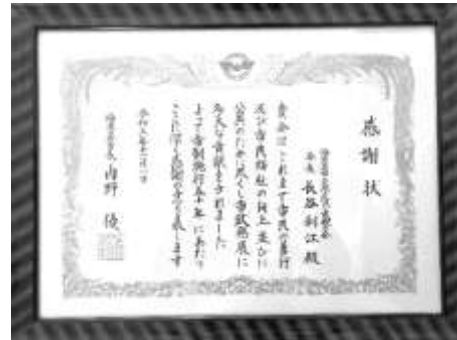 感謝状
会長 長谷 利江 殿
貴会はこれまで市民の善行
及び市民福祉の向上並びに
公共のために尽くし市政発展に
多大な貢献をされました
よって市制施行五十年にあたり
ここに深く感謝の意を表します
令和三年十一月一日
海老名市長 内野 優